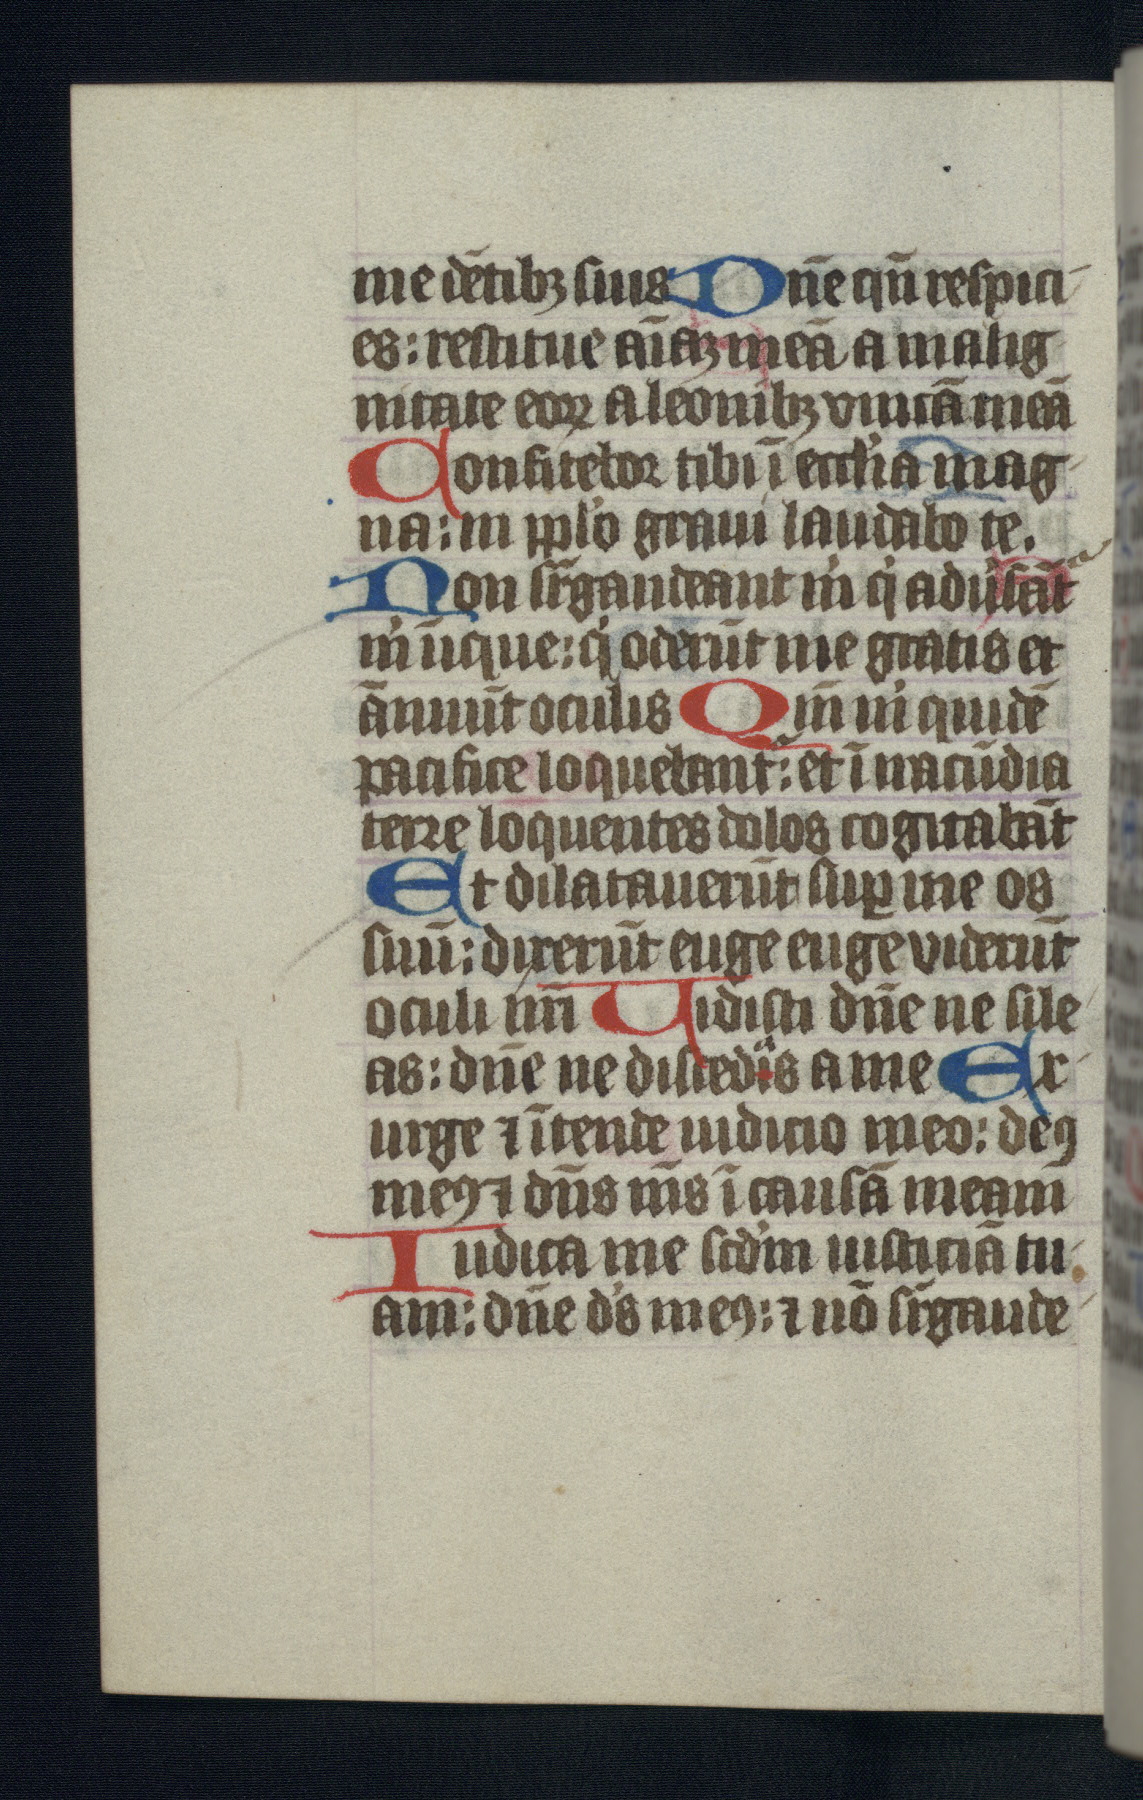 me dētibꝫ suis Dn̄e qn̄ respici-
es: restitue aīaꝫ meā a malig-
nitate eoꝝ a leonibꝫ vnicā meā
Confitebor tibi ī ecclīa mag-
na: in ipl̉o graui laudabo te.
Non sr̄gaudeant m̉ q̉ adu̓sāt᷑
m̉ īique: q̉ oderūt me gratis et
ānuūt oculis Qm̄ m̉ quidē
pacifice loquebant᷑: et ī iracūdia
terre loquentes dolos cogitabāt
Et dilatauerūt suꝑ me os
suū: dixerūt euge euge viderūt
oculi nr̄i Uidisti dn̄e ne sile-
as: dn̄e ne discedas a me Ex-
urge ⁊ ītende iudicio meo: deꝰ
meꝰ ⁊ dn̄s m̄s ī causā meam
Iudica me scd̓m iusticiā tu-
am: dn̄e d̓s meꝰ: ⁊ nō sr̄gaude-